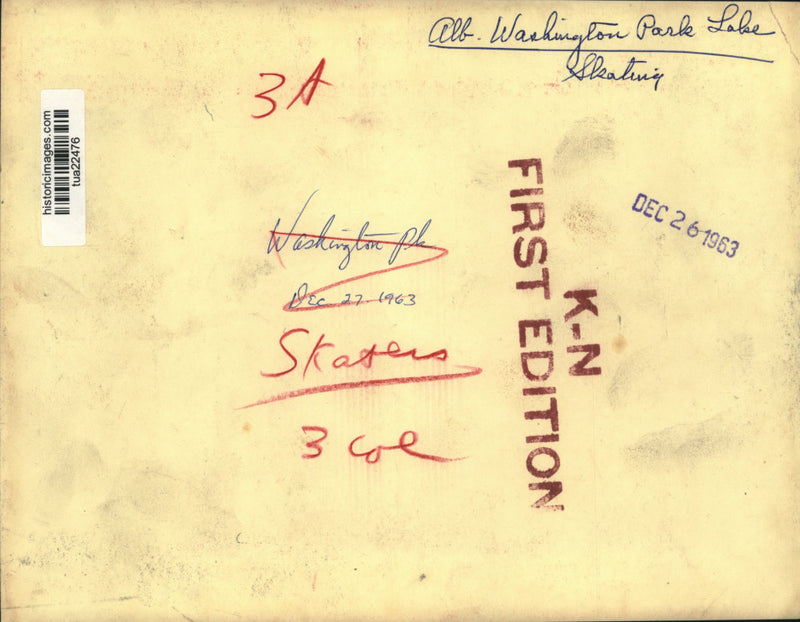 Alb. Washington Park Lake
Skating
3A
historicimages.com
tua22476
Washington Pk
Dec 27 1963
Skaters
3 col
K-N
FIRST EDITION
DEC 26 1963